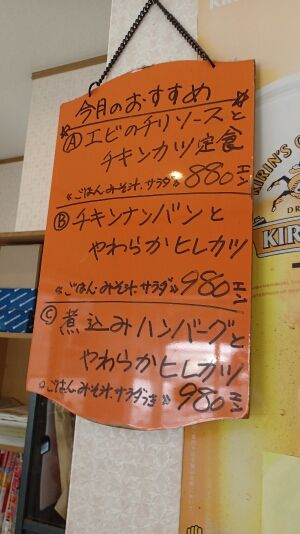 今月のおすすめ
Ⓐエビのチリソースと
チキンカツ定食
《ごはん・みそ汁・サラダ》880エン
Ⓑチキンナンバンと
やわらかヒレカツ
《ごはん・みそ汁・サラダ》980エン
Ⓒ煮込みハンバーグと
やわらかヒレカツ
《ごはん・みそ汁・サラダつき》980エン
KIRIN'S
KIR